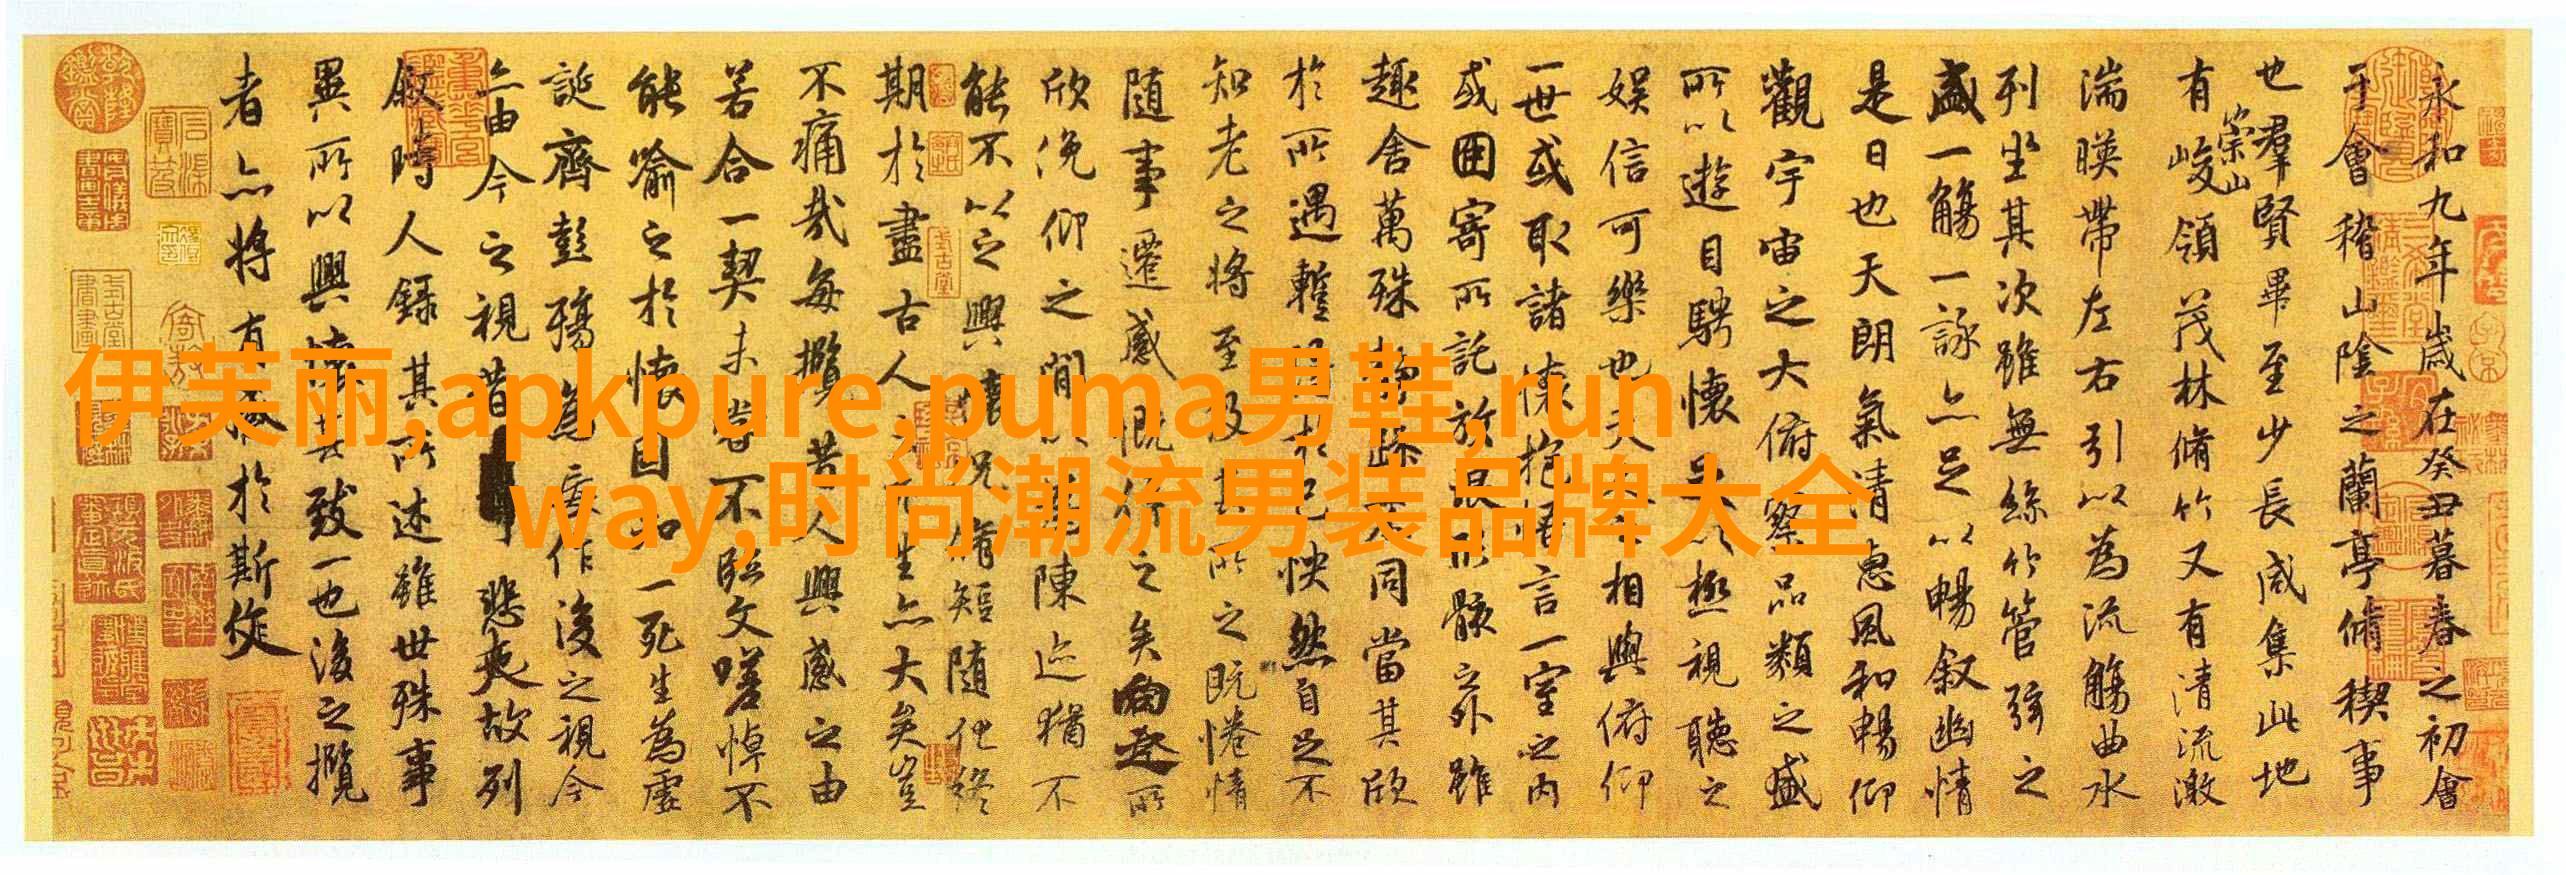 永和九年歲在癸丑暮春之初會
于會稽山陰之蘭亭脩稧事
也羣賢畢至少長咸集此地
有崇山峻領茂林脩竹又有清流激
湍暎帶左右引以為流觴曲水
列坐其次雖無絲竹管弦之
盛一觴一詠亦足以暢叙幽情
是日也天朗氣清惠風和暢仰
觀宇宙之大俯察品類之盛
所以遊目騁懷足以極視聽之
娛信可樂也夫人之相與俯仰
一世或取諸懷抱悟言一室之內
或因寄所託放浪形骸之外雖
趣舍萬殊靜躁不同當其欣
於所遇蹔得於己怏然自足不
知老之將至及其所之既惓情
隨事遷感慨係之矣向之所
欣俛仰之閒以為陳迹猶不
能不以之興懷況脩短隨化終
期於盡古人云死生亦大矣豈
不痛哉每攬昔人興感之由
若合一契未嘗不臨文嗟悼不
能喻之於懷固知一死生為虛
誕齊彭殤為妄作後之視今
亦由今之視昔悲夫故列
叙時人錄其所述雖世殊事
異所以興懷其致一也後之攬
者亦將有感於斯文
伊芙丽,apkpure,puma男鞋,run
way,时尚潮流男装品牌大全